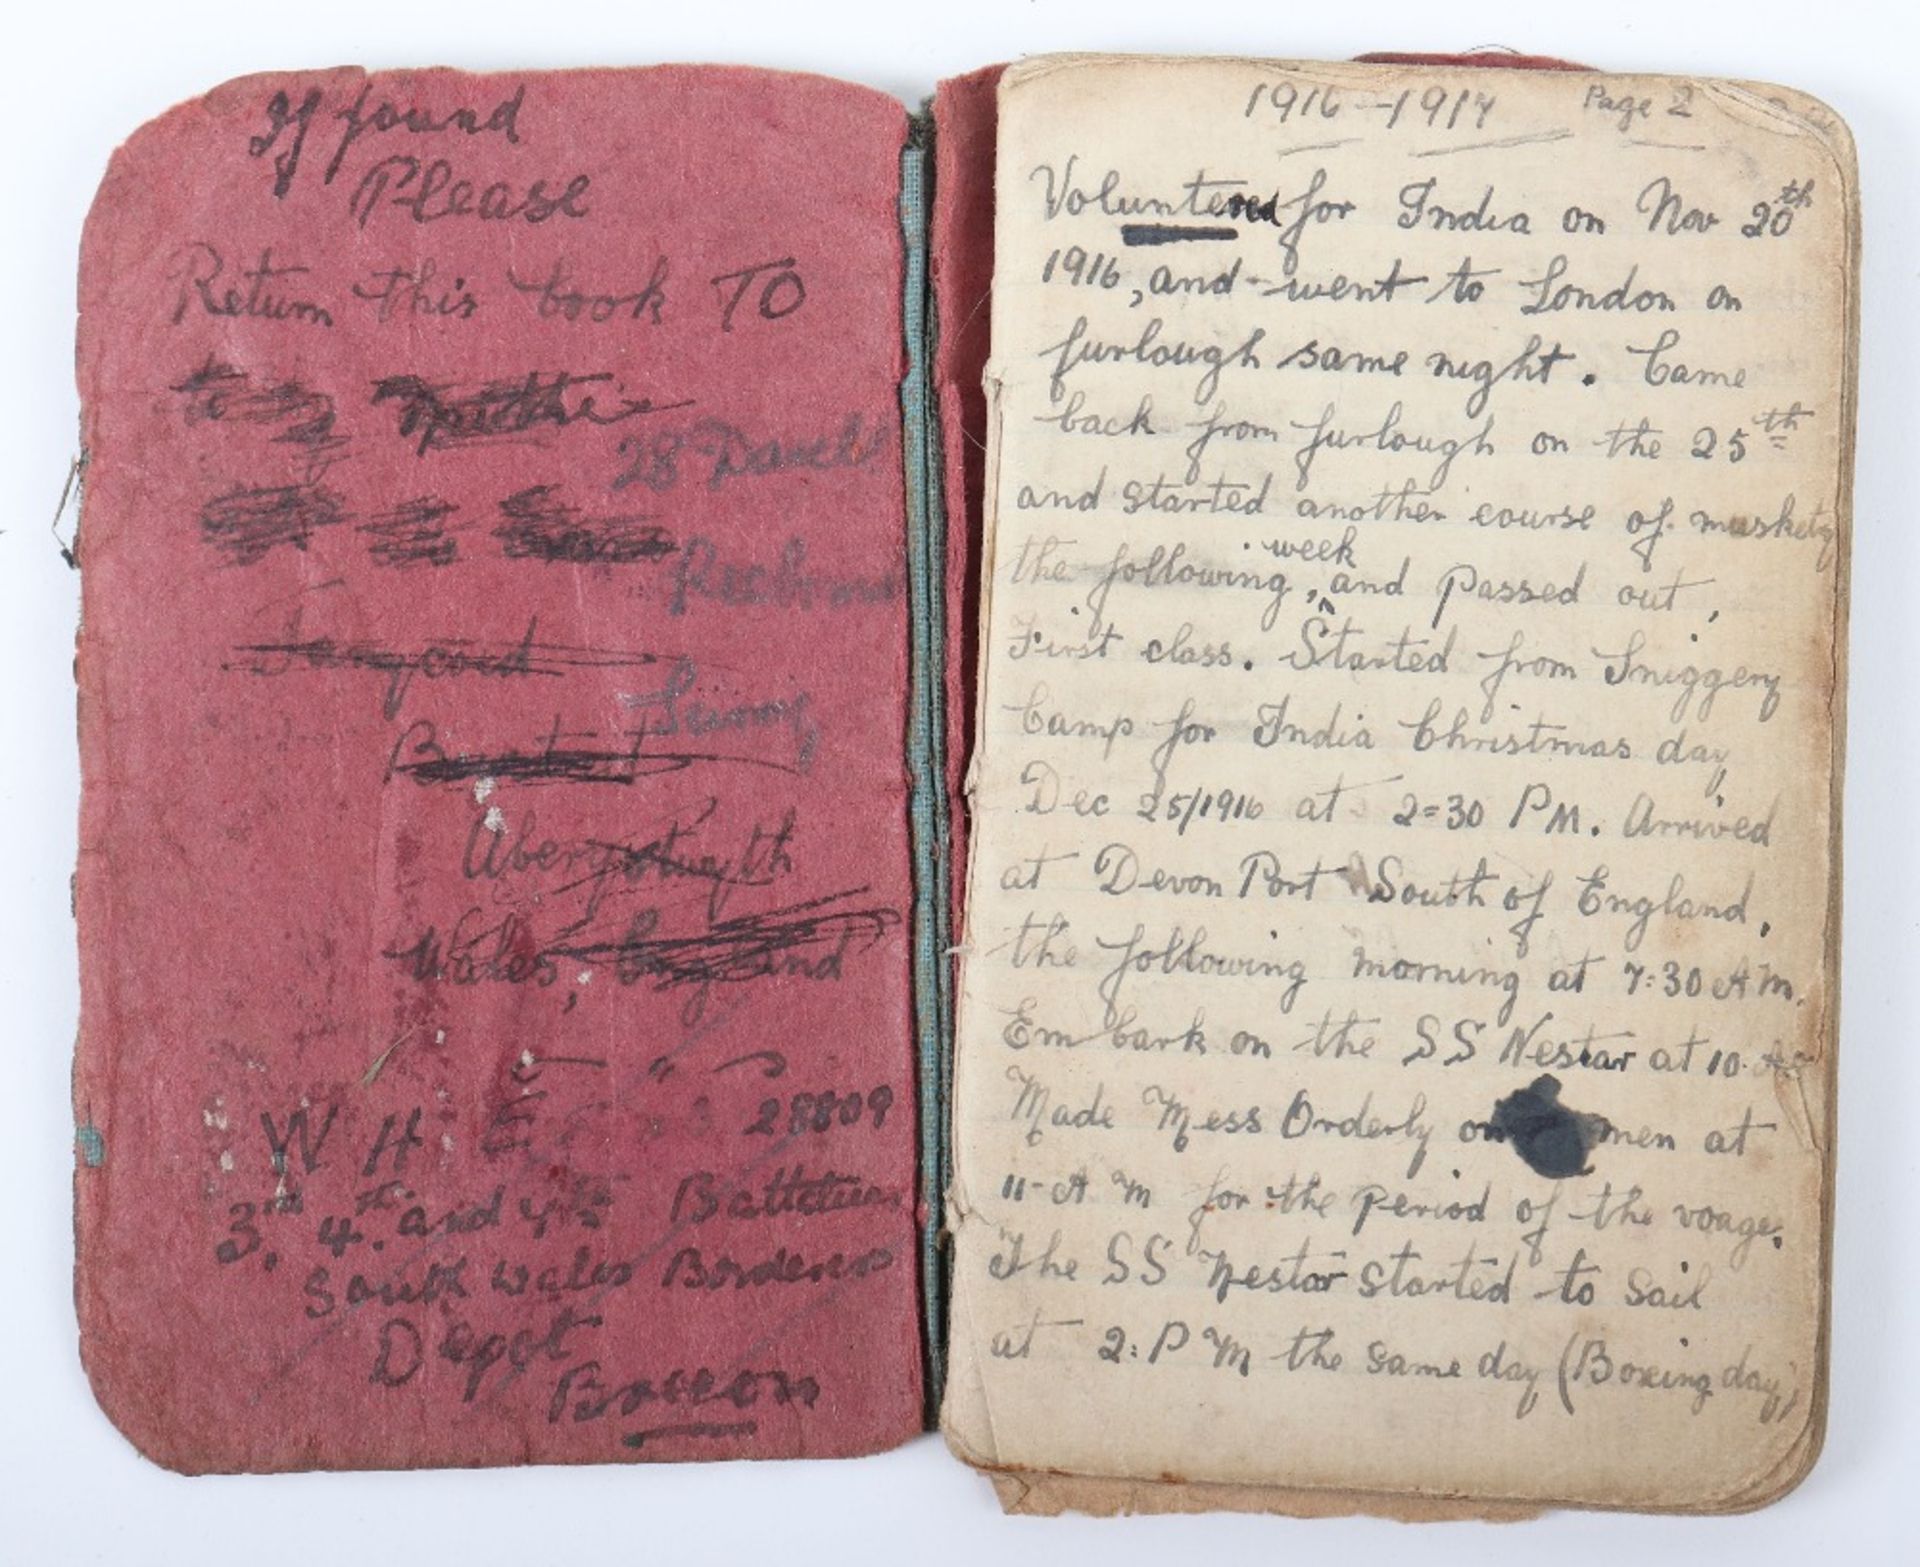 If found
Please
Return this book TO
28
Tanycoed
Aberystwyth
Wales, England
W H 28809
3rd, 4th, and 4th
South Wales Borderers
Depot
Brecon
1916-1917 Page 2
Voluntered for India on Nov 20th
1916, and went to London on
furlough same night. Came
back from furlough on the 25th
and started another course of muskety
the following, week and Passed out,
First class. Started from Sniggery
Camp for India Christmas day
Dec 25/1916 at 2=30 PM. Arrived
at Devon Port South of England,
the following morning at 7:30 AM.
Embark on the SS Nestar at 10.
Made Mess Orderly on men at
11-AM for the Period of the voage.
The SS Nestar started to sail
at 2:PM the same day (Boxing day)